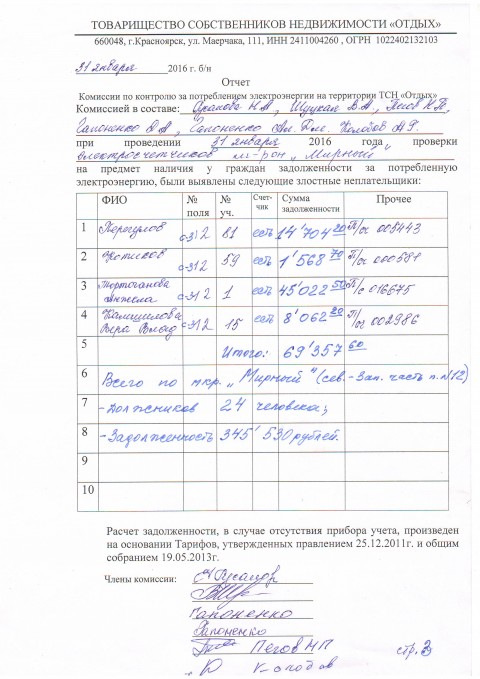 ТОВАРИЩЕСТВО СОБСТВЕННИКОВ НЕДВИЖИМОСТИ «ОТДЫХ»
660048, г.Красноярск, ул. Маерчака, 111, ИНН 2411004260 , ОГРН 1022402132103
31 января 2016 г. б/н
Отчет
Комиссии по контролю за потреблением электроэнергии на территории ТСН «Отдых»
Комиссией в составе: Щукан В.А., Пегов Н.П.,
Гапоненко Д.А., Гапоненко Ал. Колодов
при проведении 31 января 2016 года проверки
электросчетчиков м-рон „Мирный"
на предмет наличия у граждан задолженности за потребленную
электроэнергию, были выявлены следующие злостные неплательщики:
ФИО № поля № уч. Счет-чик Сумма задолженности Прочее
1 Перегулов с-з12 81 есть 14'704 20 П/сч 005443
2 с-з12 59 есть 1'568 70 П/сч
3 Анжела с-з12 1 есть 45'022 50 П/с 016675
4 Камшилова Вера Влад с-з12 15 есть 8'062 20 П/сч 002986
5 Итого: 69'357 60
6 Всего по мкр. „Мирный" (сев.-Зап. часть п.N12)
7 - Должников 24 человека;
8 - Задолженность 345'530 рублей.
9
10
Расчет задолженности, в случае отсутствия прибора учета, произведен
на основании Тарифов, утвержденных правлением 25.12.2011г. и общим
собранием 19.05.2013г.
Члены комиссии:
Гапоненко
Гапоненко
Пегов НП стр. 3
Колодов